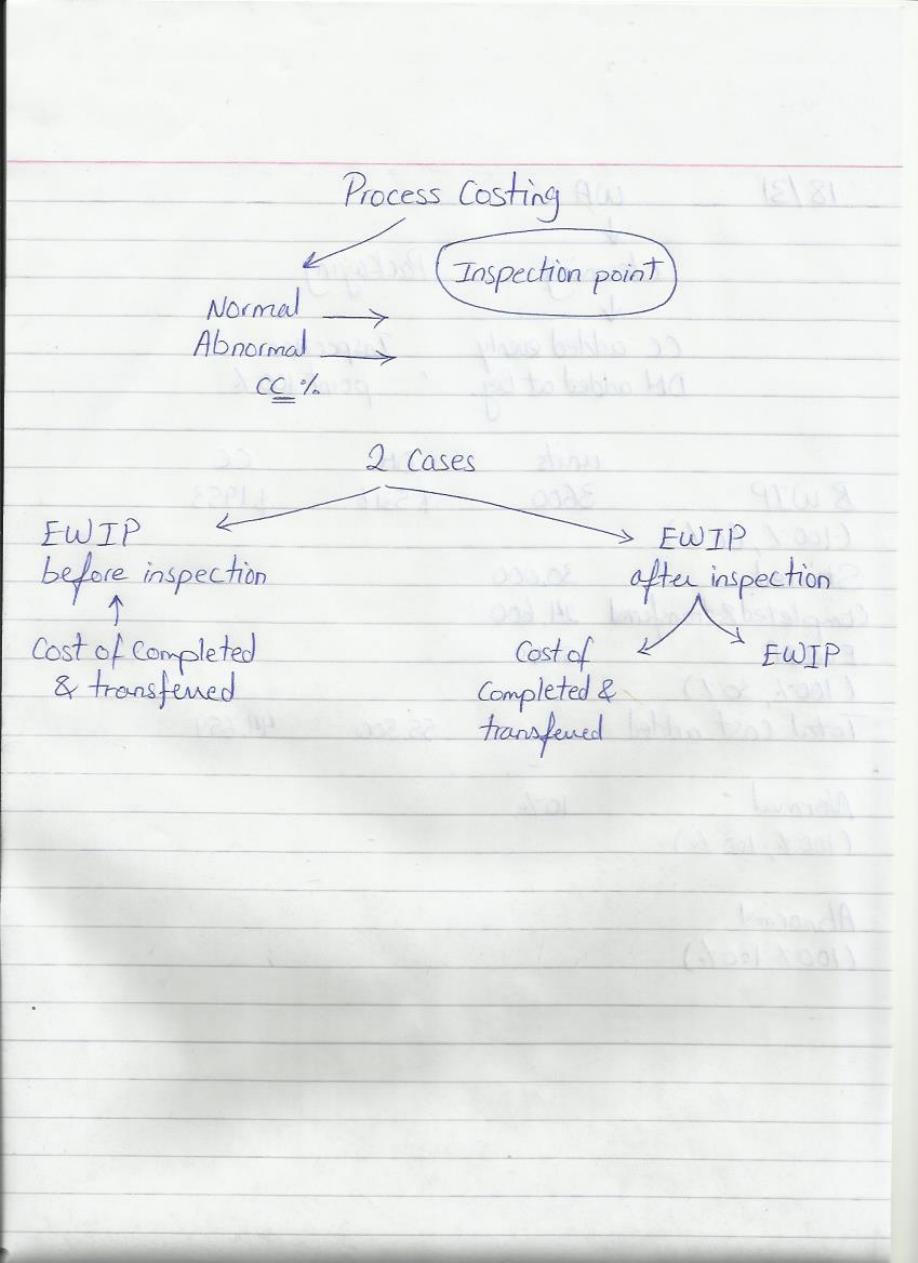 Process Costing
Inspection point
Normal →
Abnormal →
CC %
2 Cases
EWIP
before inspection
↑
Cost of Completed
& transferred
EWIP
after inspection
Cost of
Completed &
transferred
EWIP